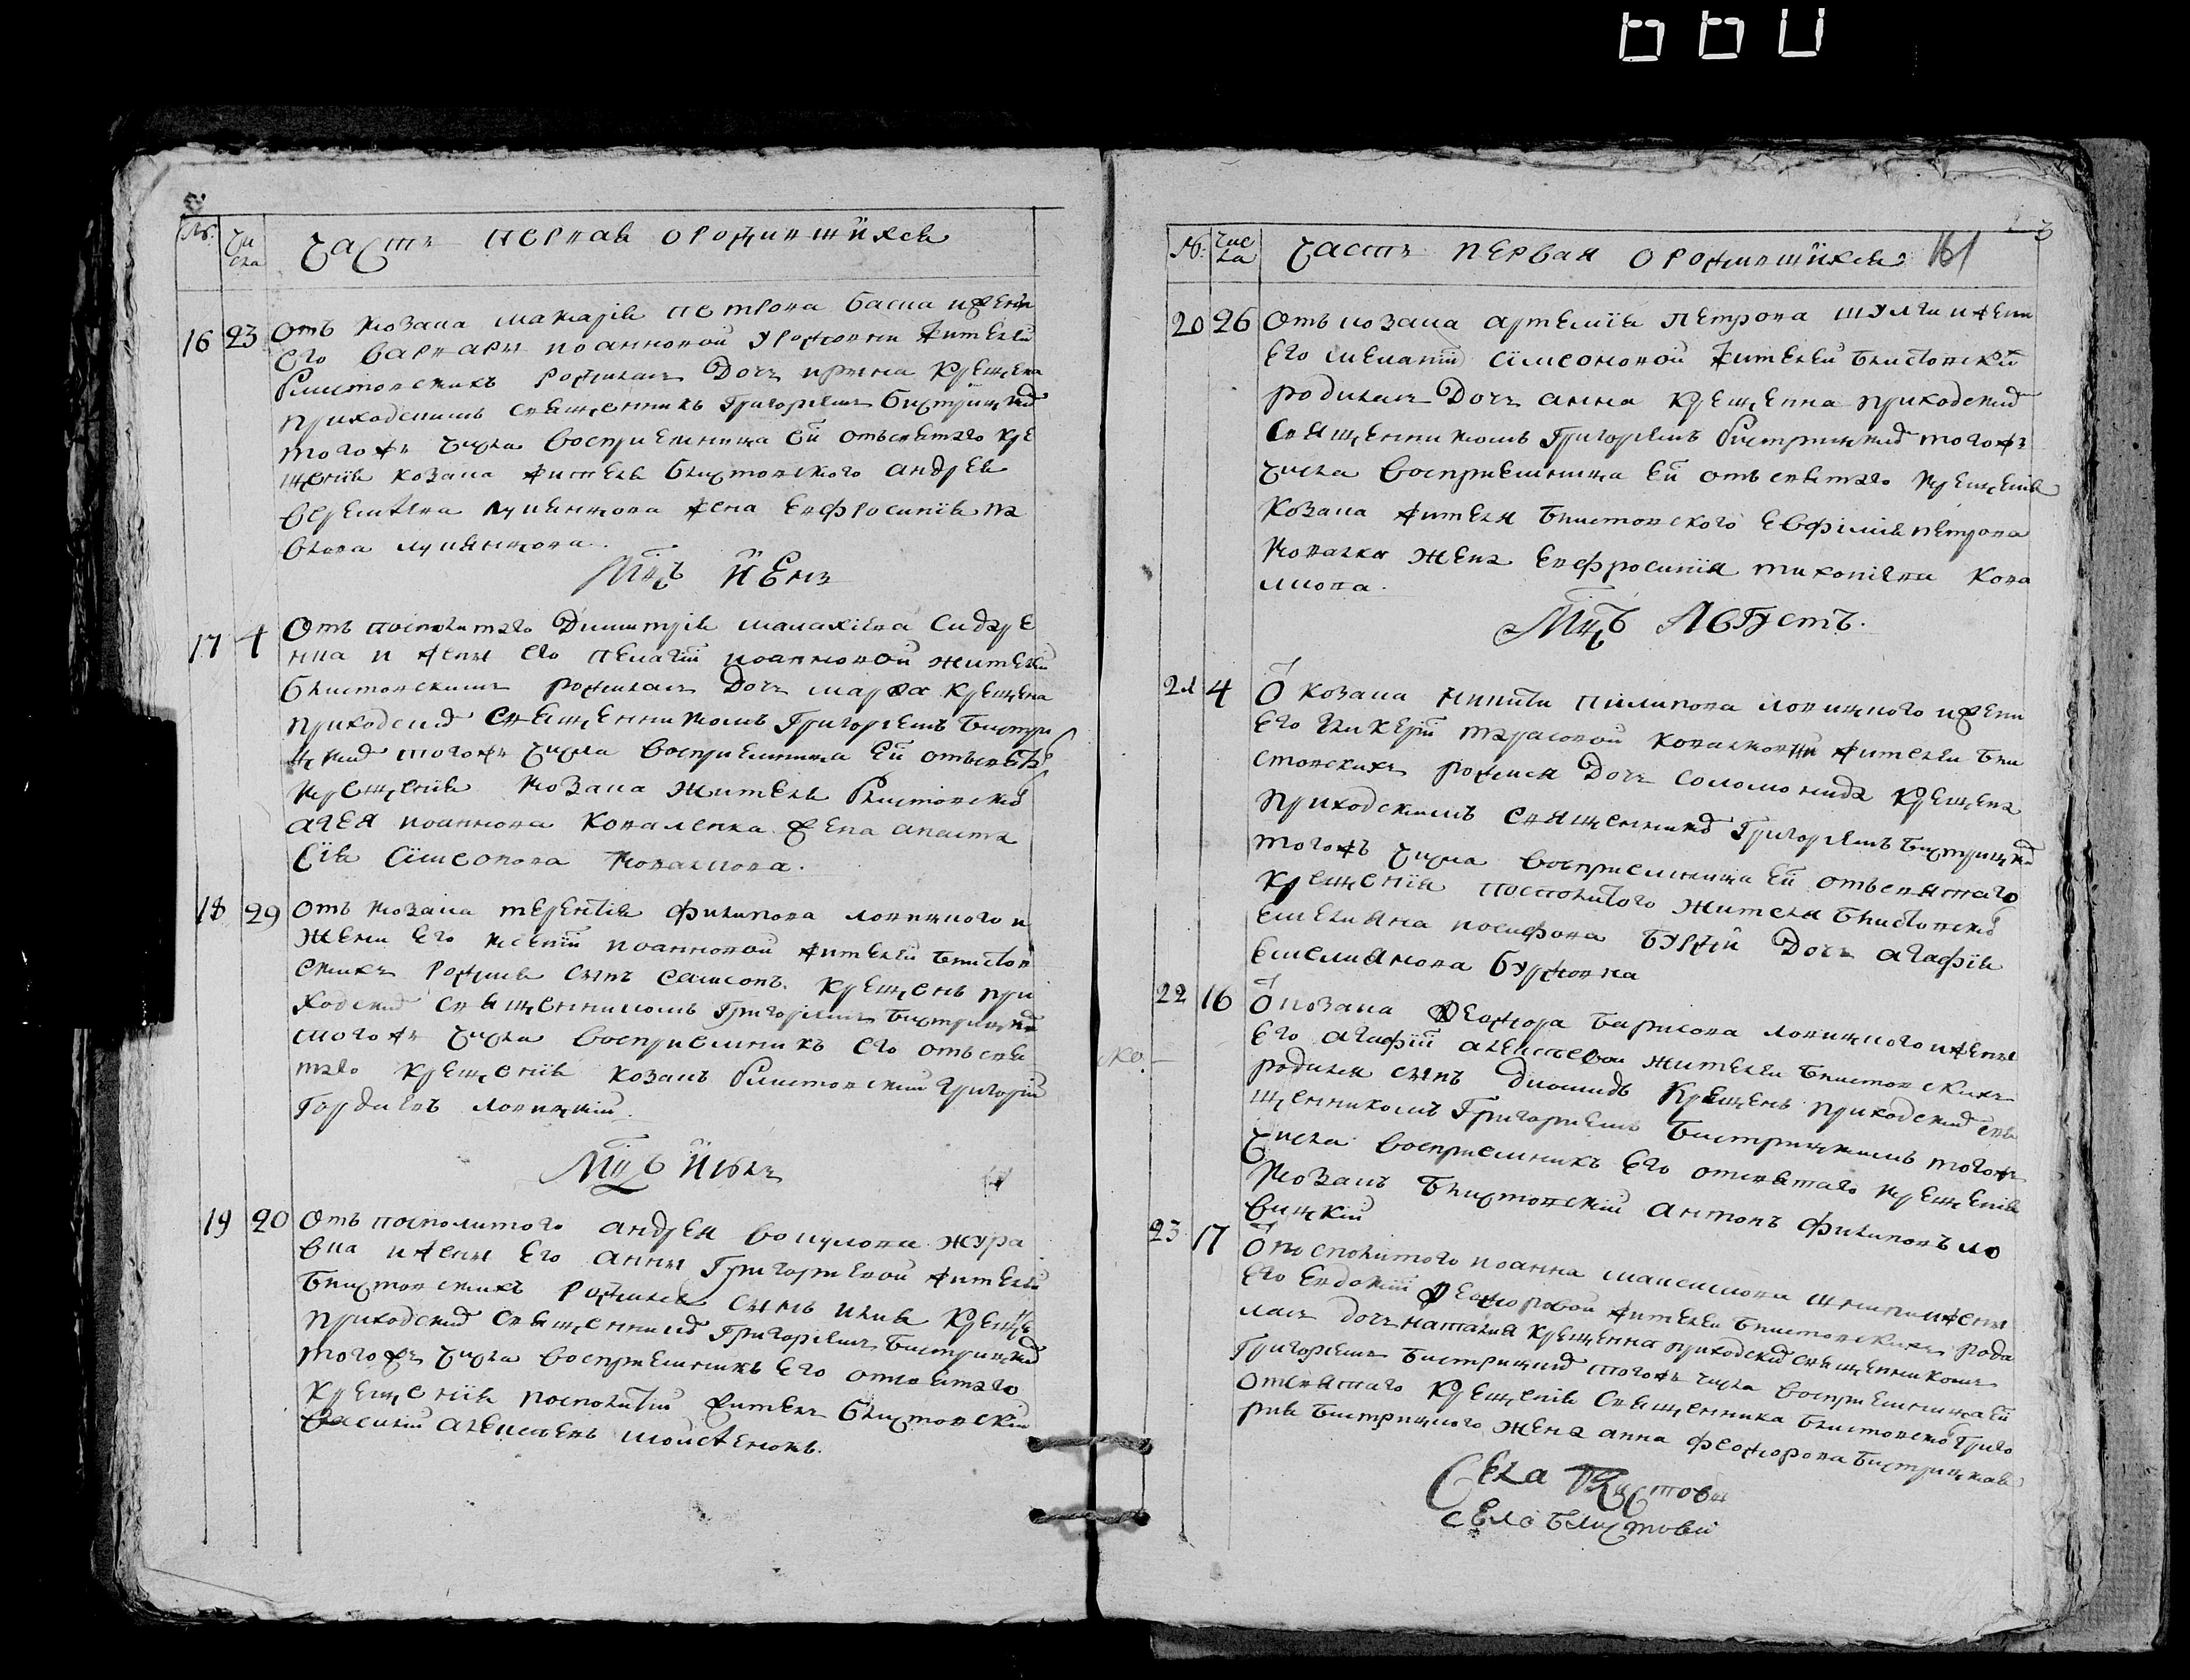 №. Чи
сла
Часть первая о родившихся
16 23 Отъ козака макарія петрова баска и жени
его варвары иоанновой урожонни жителей
блистовскихъ родилась дочь ирина крещена
приходскимъ священникъ Григоріемъ Бистрицкид
того жъ числа восприемница ей отъ святаго кре
щенія козака жителя блистовского андрея
жена евфросинія па
влова
Мцъ Июнь
17 4 Отъ посполитаго Димитрія малахіева сидаре
нка и жены его пелагіи иоанновой жителей
блистовскимъ родилась дочь марфа крещена
приходскид священникомъ Григоріемъ Бистри
цкид того жъ числа восприемница ей отъ свт
крещенія козака жителя блистовско
агея иоаннова коваленка жена анаста
сія сімеонова ковалкова.
18 29 Отъ козака терентія филипова ловицкого и
жени его ксеніи иоанновой жителей блистов
скихъ родился сынъ самсонъ. крещенъ при
ходскид священникомъ Григоріемъ Бистрицкид
того жъ числа восприемникъ его отъ свя
таго крещенія козакъ блистовский григорій
гордіевъ ловицкій.
Мцъ Июль
19 20 Отъ посполитого андрея вокулова жура
вка и жены его анны Григориевой жителей
блистовскихъ родился сынъ илия крещенъ
приходскид священникид Григоріемъ Бистрицкид
того жъ числа восприемникъ его отсвятаго
крещенія посполитій житель блистовскій
василій алексѣевъ мойсѣенокъ.
№. Чис
ла
Часть первая о родившихся 161
20 26 Отъ козака артемія петрова шулги и жени
его меланіи сімеоновой жителей блистовскй
родилась дочь анна крещенна приходскид
священникомъ Григоріемъ Бистрицкид того жъ
числа восприемница ей отъ святаго крещенія
козака жителя блистовского евфімія петрова
ковалка жена евфросинія тихоніева кова
лкова.
Мцъ Августъ.
21 4 Ѿ козака никити пилипова ловицкого и жени
его гликеріи тарасовой ковалковни жителей бли
стовскихъ родилися дочь соломонида крещена
приходскимъ священникид Григоріемъ Бистрицкид
того жъ числа восприемница ей отъ святаго
крещенія посполитого жителя блистовско
емелиана иосифова буржи дочь агафія
емелиянова буржовна
22 16 Ѿ козака Феодора Барисова ловицкого и жены
его агафіи алексѣевой жителей блистовскихъ
родился сынъ диомидъ крещенъ приходскид свя
щенникомъ Григориемъ Бистрицкимъ того жъ
числа восприемникъ его отсвятаго крещенія
козакъ блистовский антонъ филиповъ ло
вицкій
23 17 Ѿ посполитого иоанна максимова и жены
его евдокіи Феодоровой жителей блистовскихъ роди
лась дочь наталия крещенна приходскид священникомъ
Григоріемъ Бистрицкид того жъ числа восприемница ей
отсвятаго крещенія священника блистовско григо
рия бистрицкого жена анна феодорова бистрицкая
Села Блистови
село Блистови